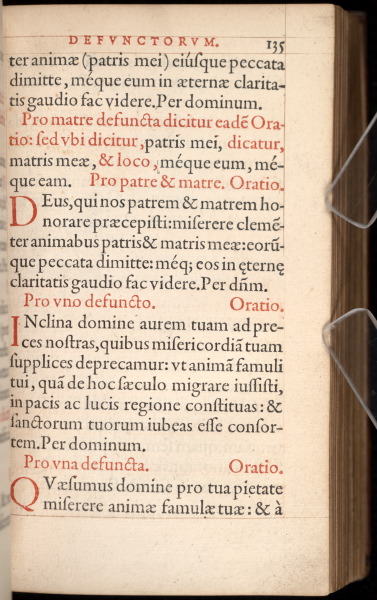 DEFVNCTORVM. 135
ter animæ (patris mei) eiúſque peccata
dimitte, méque eum in æternæ clarita-
tis gaudio fac videre. Per dominum.
Pro matre defuncta dicitur eadē Ora-
tio: ſed vbi dicitur, patris mei, dicatur,
matris meæ, & loco, méque eum, mé-
que eam. Pro patre & matre. Oratio.
DEus, qui nos patrem & matrem ho-
norare præcepiſti: miſerere clemē-
ter animabus patris & matris meæ: eorū-
que peccata dimitte: méq; eos in ęternę
claritatis gaudio fac videre. Per dñm.
Pro vno defuncto. Oratio.
INclina domine aurem tuam ad pre-
ces noſtras, quibus miſericordiā tuam
ſupplices deprecamur: vt animā famuli
tui, quā de hoc ſæculo migrare iuſſiſti,
in pacis ac lucis regione conſtituas: &
ſanctorum tuorum iubeas eſſe conſor-
tem. Per dominum.
Pro vna defuncta. Oratio.
QVæſumus domine pro tua pietate
miſerere animæ famulæ tuæ: & à